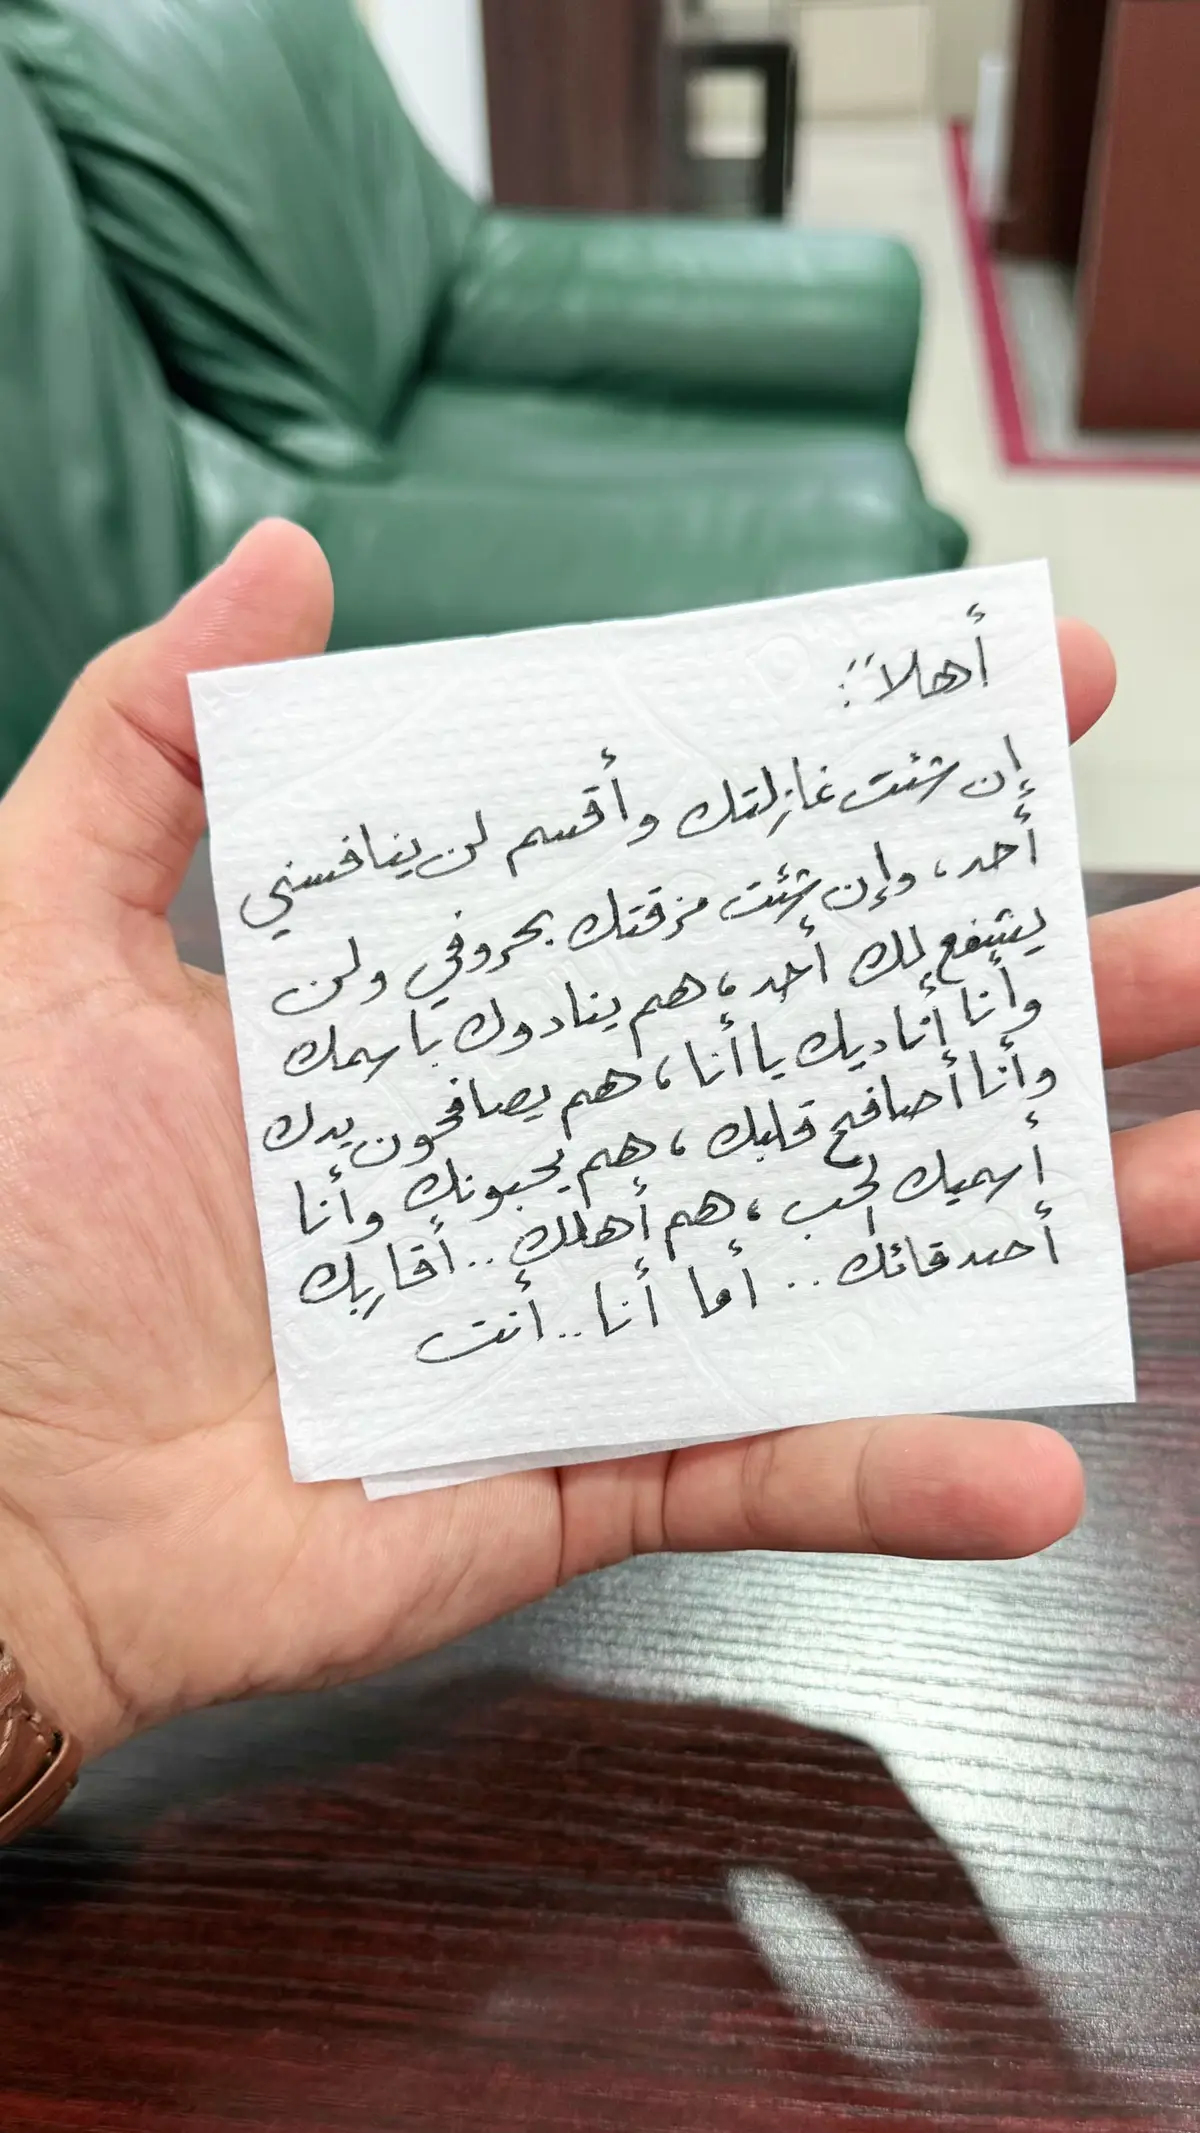 أهلاً:
إن شئت غازلتك وأقسم لن ينافسني
أحد، وإن شئت مزقتك بحروفي ولن
يشفع لك أحد، هم ينادوك باسمك
وأنا أناديك يا أنا، هم يصافحون يدك
وأنا أصافح قلبك، هم يحبونك وأنا
أسميك الحب، هم أهلك.. أقاربك
أصدقائك.. أما أنا.. أنت